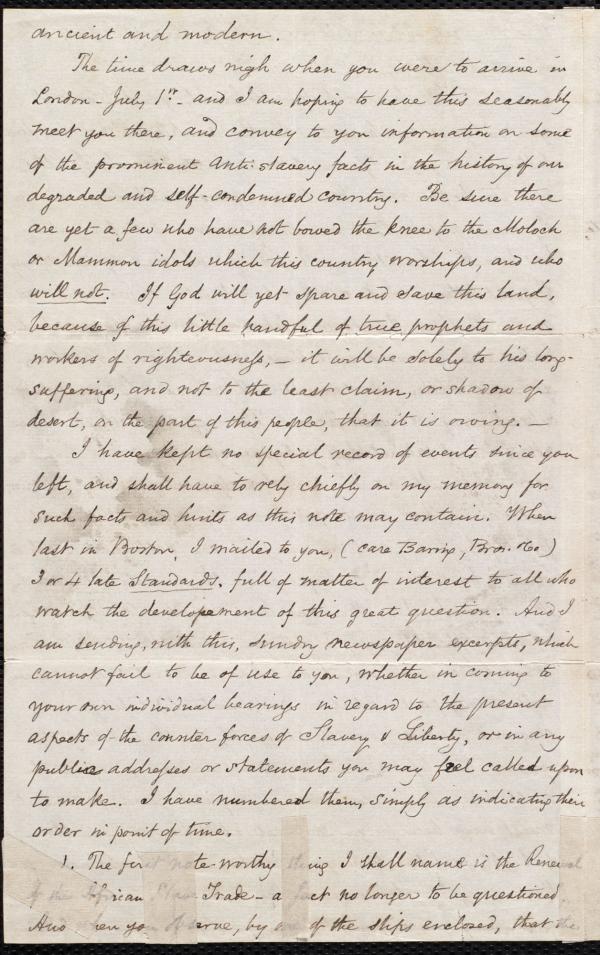 ancient and modern.
The time draws nigh when you were to arrive in
London - July 1st. - and I am hoping to have this seasonably
meet you there, and convey to you information on some
of the prominent Anti-slavery facts in the history of our
degraded and self-condemned country. Be sure there
are yet a few who have not bowed the knee to the Moloch
or Mammon idols which this country worships, and who
will not. If God will yet spare and save this land,
because of this little handful of true prophets and
workers of righteousness, - it will be solely to his long-
suffering, and not to the least claim, or shadow of
desert, on the part of this people, that it is owing. -
I have kept no special record of events since you
left, and shall have to rely chiefly on my memory for
such facts and hints as this note may contain. When
last in Boston, I mailed to you, (care Baring, Bros. & Co)
3 or 4 late Standards, full of matter of interest to all who
watch the developement of this great question. And I
am sending, with this, sundry newspaper excerpts, which
cannot fail to be of use to you, whether in coming to
your own individual bearings in regard to the present
aspects of the counter forces of Slavery & Liberty, or in any
public addresses or statements you may feel called upon
to make. I have numbered them, simply as indicating their
order in point of time.
1. The first note-worthy thing I shall name is the Renewal
of the African Slave Trade - a fact no longer to be questioned.
And when you observe, by one of the slips enclosed, that the